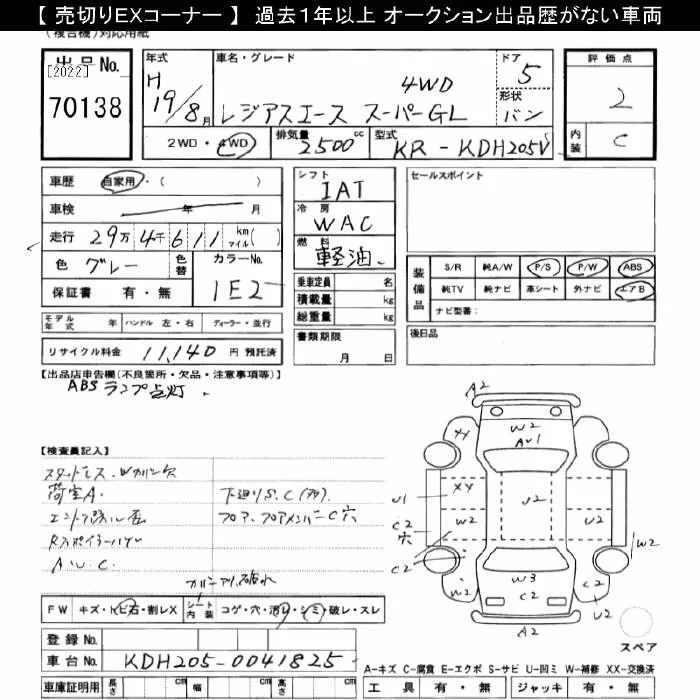 【 売切りEXコーナー 】 過去1年以上 オークション出品歴がない車両
(複合機)対応用紙
出品No.
[2022]
70138
年式
H 19/8月
車名・グレード
4WD
レジアスエース スーパーGL
ドア
5
形状
バン
評価点
2
内装
C
2WD・4WD
排気量
2500cc
型式
KR-KDH205V
車歴
自家用・( )
車検
年 月
走行
29万4千611
km
マイル
( )
色
グレー
色替
カラーNo.
1E2
保証書
有・無
シフト
IAT
冷房
WAC
燃料
軽油
乗車定員
名
積載量
kg
総重量
kg
書類期限
月 日
セールスポイント
装備品
S/R
純A/W
P/S
P/W
ABS
純TV
純ナビ
革シート
外ナビ
エアB
ナビ型番:
後日品
モデル年式
年
ハンドル
左・右
ディーラー・並行
リサイクル料金
11,140
円
預託済
【出品店申告欄(不良箇所・欠品・注意事項等)】
ABSランプ点灯
【検査員記入】
荷室A.
下廻りS.C(多)
フロア、フロアメンバーC穴
A.W.C.
FW
キズ・トビ石・割レX
シート内装
コゲ・穴・汚レ・シミ・破レ・スレ
登録No.
車台No.
KDH205-0041825
車庫証明用
長さ
cm
幅
cm
高さ
cm
A2
W2
AW1
XY
U1
C2
穴
W2
U2
U2
C2
W2
W2
W3
C2
C2
U2
A2
スペア
A-キズ C-腐食 E-エクボ S-サビ U-凹ミ W-補修 XX-交換済
工具
有・無
ジャッキ
有・無